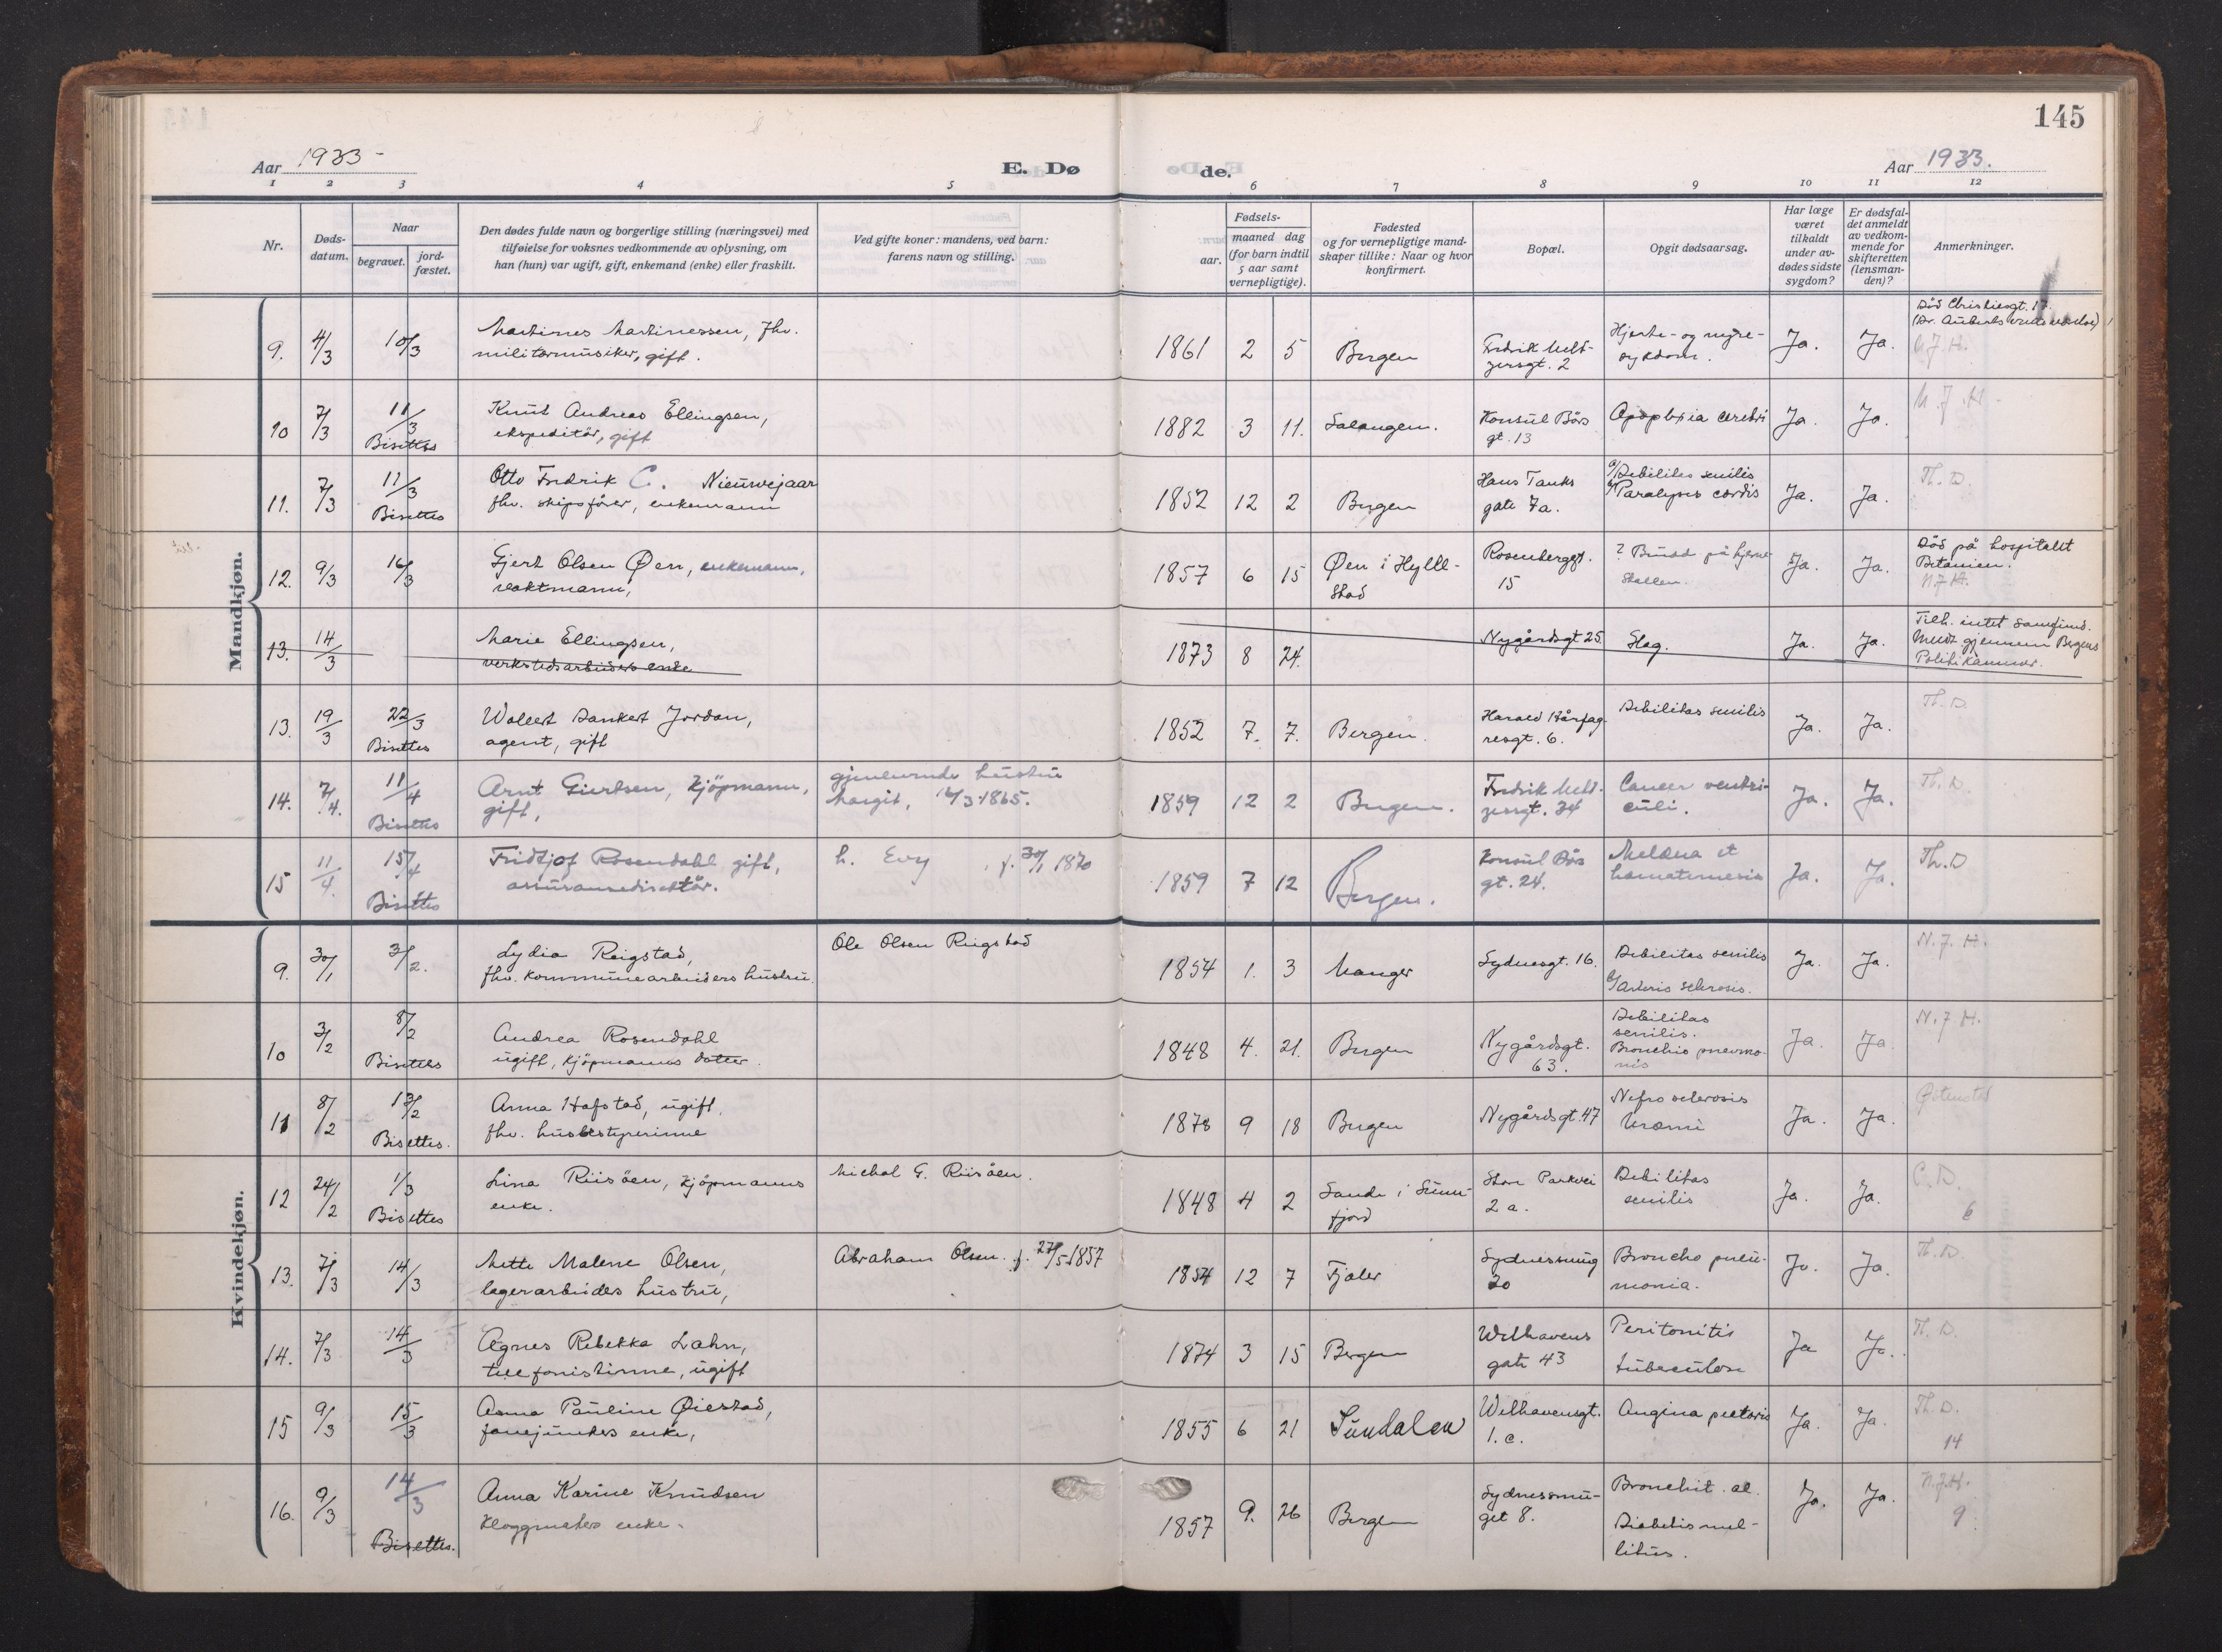 145
Aar 1933 -
E. Dø
de.
Aar 1933.
1 2 3 4 5 6 7 8 9 10 11 12
Nr.
Døds-
datum.
Naar
begravet.
jord-
fæstet.
Den dødes fulde navn og borgerlige stilling (næringsvei) med
tilføielse for voksnes vedkommende av oplysning, om
han (hun) var ugift, gift, enkemand (enke) eller fraskilt.
Ved gifte koner: mandens, ved barn:
farens navn og stilling.
Fødsels-
aar.
maaned dag
(for barn indtil
5 aar samt
vernepligtige).
Fødested
og for vernepligtige mand-
skaper tillike: Naar og hvor
konfirmert.
Bopæl.
Opgit dødsaarsag.
Har læge
været
tilkaldt
under av-
dødes sidste
sygdom?
Er dødsfal-
det anmeldt
av vedkom-
mende for
skifteretten
(lensman-
den)?
Anmerkninger.
Mandkjøn.
9. 4/3 10/3 Martines Martinessen, fhv.
militærmusiker, gift.
1861 2 5 Bergen
Fredrik Melt-
zersgt. 2
Hjerte- og nyre-
sykdom.
Ja. Ja.
Död Christiesgt. 17.
N. J. H.
10 7/3 11/3 Bisettes
Knut Andreas Ellingsen,
ekspeditör, gift
1882 3 11. Salangen.
Konsul Börs
gt. 13
Apoplexia cerebri
Ja. Ja.
N. J. H.
11. 7/3 11/3 Bisettes
Otto Fredrik C. Nieuwejaar
fhv. skipsfører, enkemann
1852 12 2 Bergen
Hans Tanks
gate 7a.
a/Debilitas senilis
b/Paralysis cordis
Ja. Ja.
Th. D.
12. 9/3 16/3
Gjert Olsen Øen, enkemann,
vaktmann,
1857 6 15 Øen i Hylle-
stad
Rosenbergsgt.
15
? Brudd på hjerne
skallen.
Ja. Ja.
Död på hospitalet
Betanien.
N. J. H.
13. 14/3
Marie Ellingsen,
verkstedsarbeiders enke
1873 8 24.
Nygårdsgt 25.
Slag.
Ja. Ja.
Tilh. intet samfund.
Meldt gjennem Bergens
Politikammer.
13. 19/3 22/3 Bisettes
Wollert Dankert Jordan,
agent, gift
1852 7. 7. Bergen.
Harald Hårfag-
resgt. 6.
Debilitas senilis
Ja. Ja.
Th. D.
14. 7/4. 11/4 Bisettes
Arnt Giertsen, kjöpmann,
gift,
gjenlevende hustru
Margit, 14/3 1865.
1859 12 2 Bergen.
Fredrik Melt-
zersgt. 34
Cancer ventri-
culi.
Ja. Ja.
Th. D.
15 11/4. 15/4 Bisettes
Fridtjof Rosendahl gift,
assuransedirektör.
h. Evy , f. 30/1 1870
1859 7 12 Bergen.
Konsul Börs
gt. 24.
Melæna et
hæmatemesis
Ja. Ja.
Th. D
Kvindekjøn.
9. 30/1 3/2.
Lydia Reigstad,
fhv. kommunearbeiders hustru.
Ole Olsen Reigstad
1854 1. 3 Manger
Sydnesgt. 16.
Debilitas senilis
b/Arterio sclerosis.
Ja. Ja.
N. J. H.
10 3/2 8/2 Bisettes
Andrea Rosendahl
ugift, kjöpmanns datter.
1848 4. 21. Bergen
Nygårdsgt.
63.
Debilitas
senilis.
Bronchio pnevmo-
nis
Ja. Ja
N. J. H.
11 8/2 13/2 Bisettes.
Anna Hofstad, ugift,
fhv. husbestyrerinne
1878 9 18 Bergen
Nygårdsgt. 47
Nefro sclerosis
Uræmi
Ja. Ja.
12 24/2 1/3 Bisettes
Lina Riisöen, kjöpmanns
enke.
Michal G. Riisöen.
1848 4 2 Sande i Sunn-
fjord
Store Parkvei
2 a.
Debilitas
senilis
Ja. Ja.
C. D.
6
13. 7/3 14/3
Mette Malene Olsen,
lagerarbeides hustru,
Abraham Olsen. f. 27/5 1857
1854 12 7 Fjaler
Sydnessmug
20
Broncho pneu-
monia.
Ja. Ja.
Th. D.
14. 7/3 14/3
Agnes Rebekka Lahn,
telefonistinne, ugift
1874 3 15 Bergen
Welhavens
gate 43
Peritonitis
tuberculosa
Ja Ja.
Th. D.
15 9/3 15/3
Anna Pauline Øiestad,
fanejunkers enke,
1855 6 21 Sundalen
Welhavensgt.
1. c.
Angina pectoris
Ja. Ja.
Th. D.
14
16. 9/3 14/3 Bisettes.
Anna Karine Knudsen
kloggmakers enke.
1857 9. 26 Bergen
Sydnessmu-
get 8.
Bronchit. al.
Diabetis mel-
litus.
Ja. Ja.
N. J. H.
9.